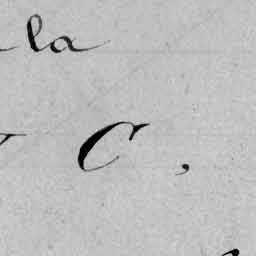 la
C,